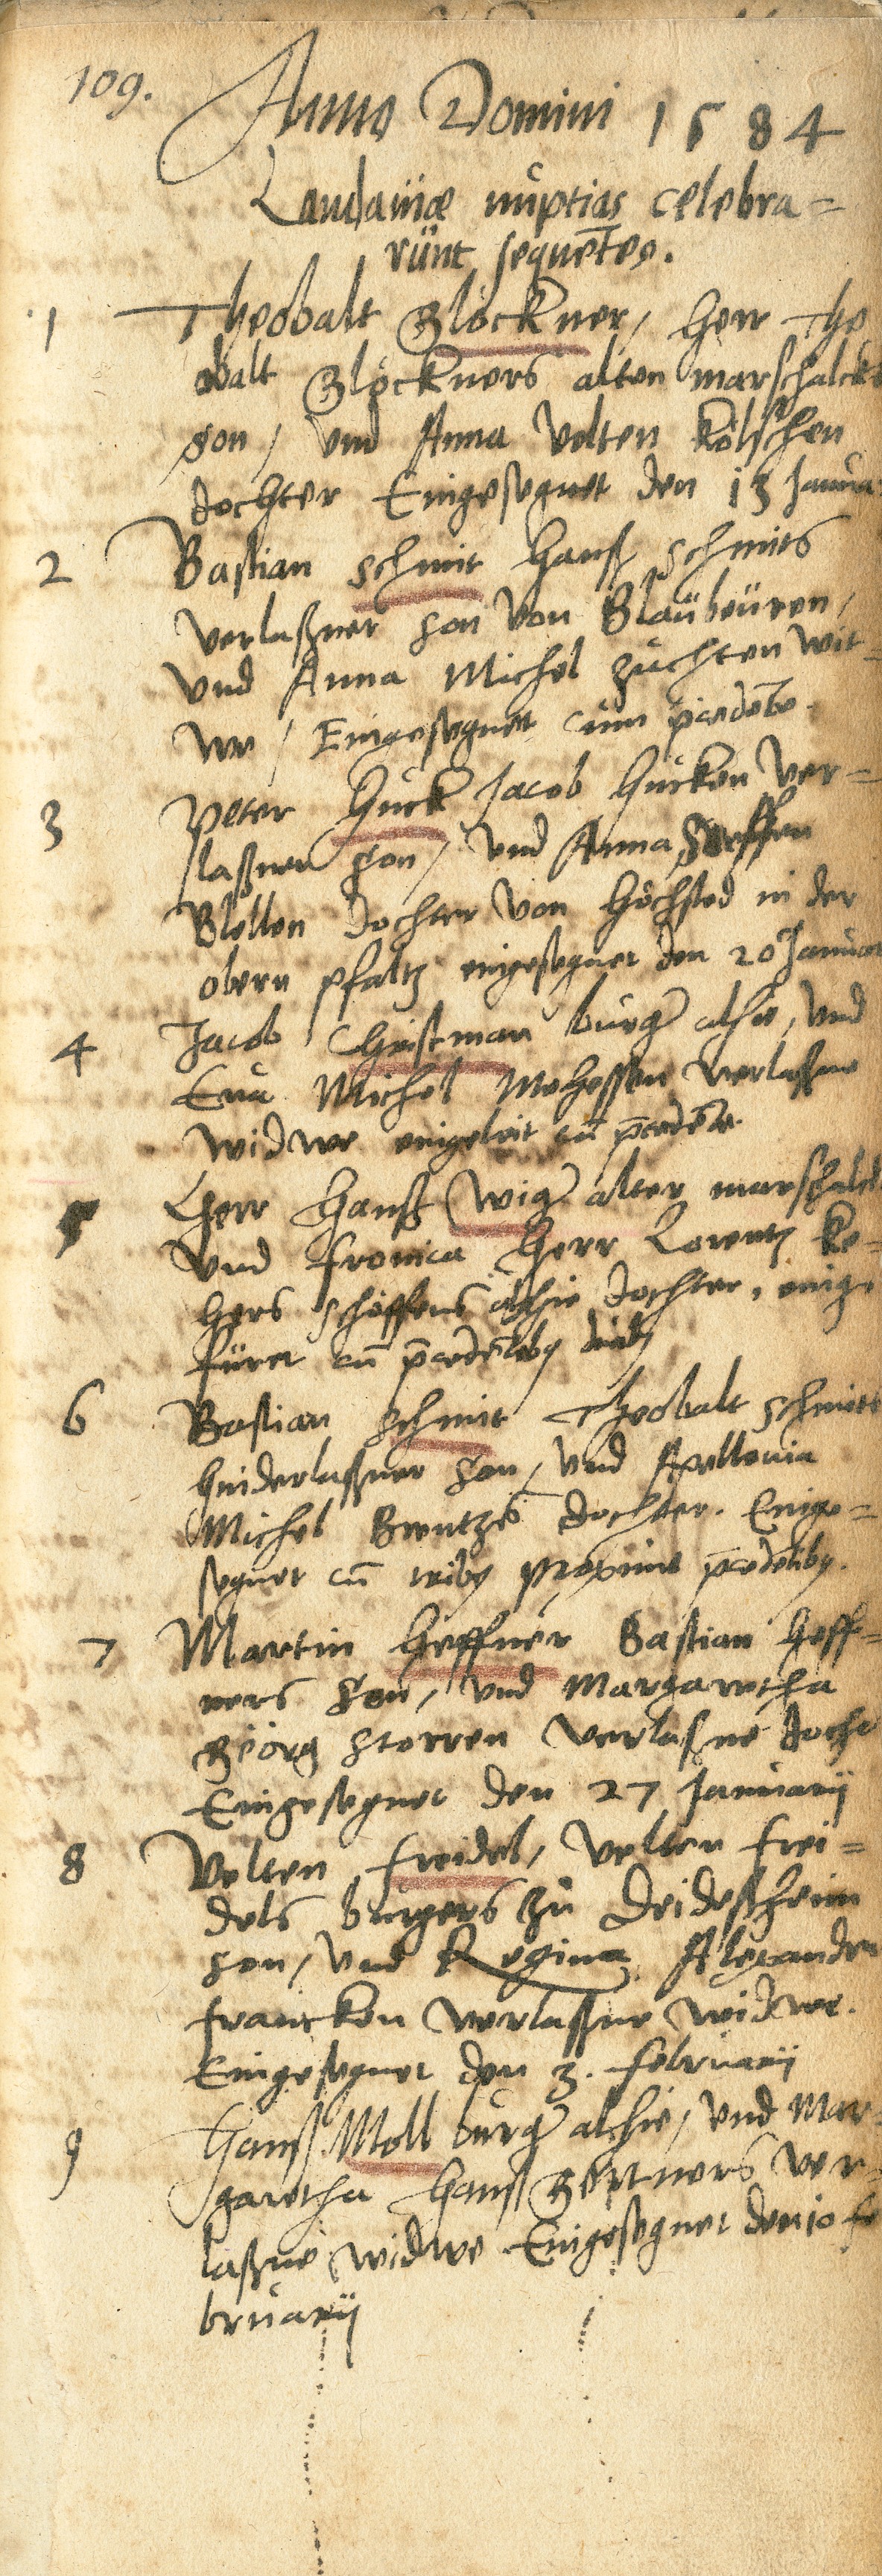 109.
Anno Domini 1584
Landaviæ nuptias celebra=
runt sequētes.
1 Theobalt Glöckner / Herr The
obalt Glöckners alten marschalcks
son / und Anna Velten Kölschen
dochter Eingesegnet den 13 Janua
2 Bastian Schmit Hanß Schmits
verlaßner son von Blaubeuren /
und Anna Michel Zuchten wit=
we / Eingesegnet cum præcedēte.
3 Peter Huck Jacob Hucken ver=
laßner son / und Anna Steffen
Blellen dochter von Höchsted in der
obern pfaltz eingesegnet den 20 Januar
4 Jacob Christman burger alhie, und
Eva Michel verlaßne
widwe eingeleit cū præcedēte.
5 Herr Hanß Wiger alter marschalck
und Fronica Herr Lorentz Ke=
hers schöffens alhie dochter, einge
füret cū præcedētibꝫ
6 Bastian Schmit Theobalt Schmits
hinderlaßner son, und Apellonia
Michel Brentzē dochter. Einge=
segnet cū tribꝫ proxime præcedētibꝫ.
7 Martin Heffner Bastian Heff=
ners son, und Margaretha
Geörg Storren verlaßne docht
Eingesegnet den 27 Januarij
8 Velten Freidel, Velten Frei=
dels burgers zu Deideßheim
son, und Regina Alexander
Francken verlaßne widwe.
Eingesegnet den 3. Februarij
9 Hanß Moll burger alhie, und Mar=
garetha Hanß Gertners ver=
laßne widwe Eingesegnet den 10 Fe
bruarij